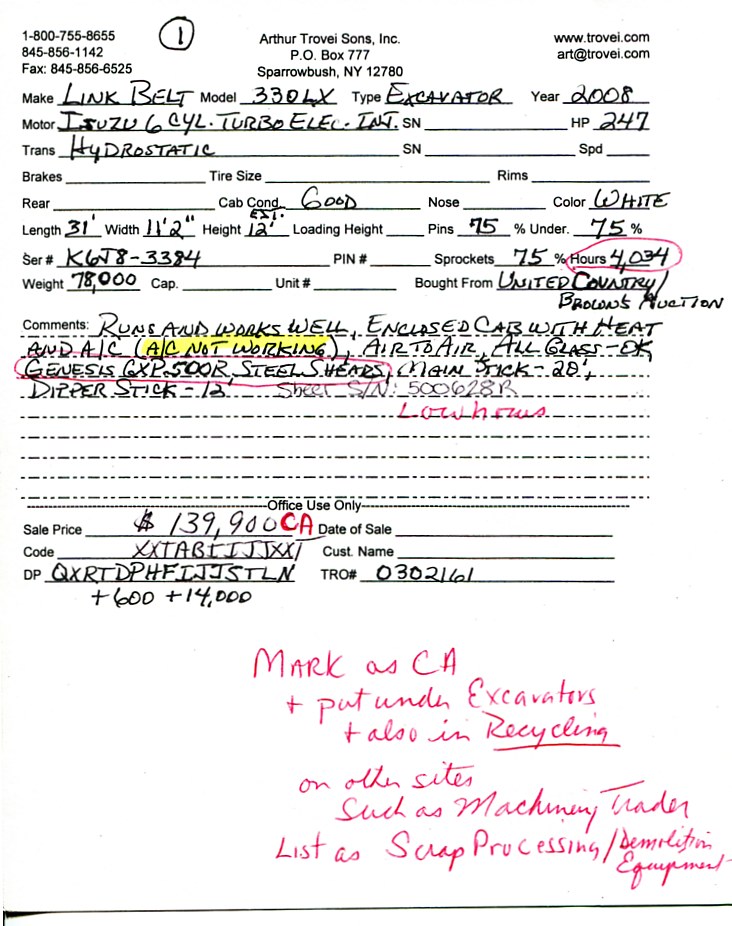 1-800-755-8655
845-856-1142
Fax: 845-856-6525
1
Arthur Trovei Sons, Inc.
P.O. Box 777
Sparrowbush, NY 12780
www.trovei.com
art@trovei.com
Make LINK BELT Model 330LX Type EXCAVATOR Year 2008
Motor ISUZU 6 CYL. TURBO ELEC. INT. SN HP 247
Trans HYDROSTATIC SN Spd
Brakes Tire Size Rims
Rear Cab Cond. GOOD Nose Color WHITE
Length 31' Width 11'2" Height EST. 12' Loading Height Pins 75 % Under. 75 %
Ser # K6J8-3384 PIN # Sprockets 75 % Hours 4,034
Weight 78,000 Cap. Unit # Bought From UNITED COUNTRY/
BROWNS AUCTION
Comments: RUNS AND WORKS WELL, ENCLOSED CAB WITH HEAT
AND A/C (A/C NOT WORKING), AIR TO AIR, ALL GLASS-OK,
GENESIS GXP 500R STEEL SHEARS, MAIN STICK - 20',
DIPPER STICK - 12' Sheer S/N: 500628R
Low hours
Office Use Only
Sale Price $ 139,900 CA Date of Sale
Code XXTABIIJJXXT Cust. Name
DP QXRTDPHFIJJSTLN TRO# 0302161
+600 +14,000
MARK as CA
+ put under Excavators
+ also in Recycling
on other sites
Such as Machinery Trader
List as Scrap Processing/Demolition
Equipment